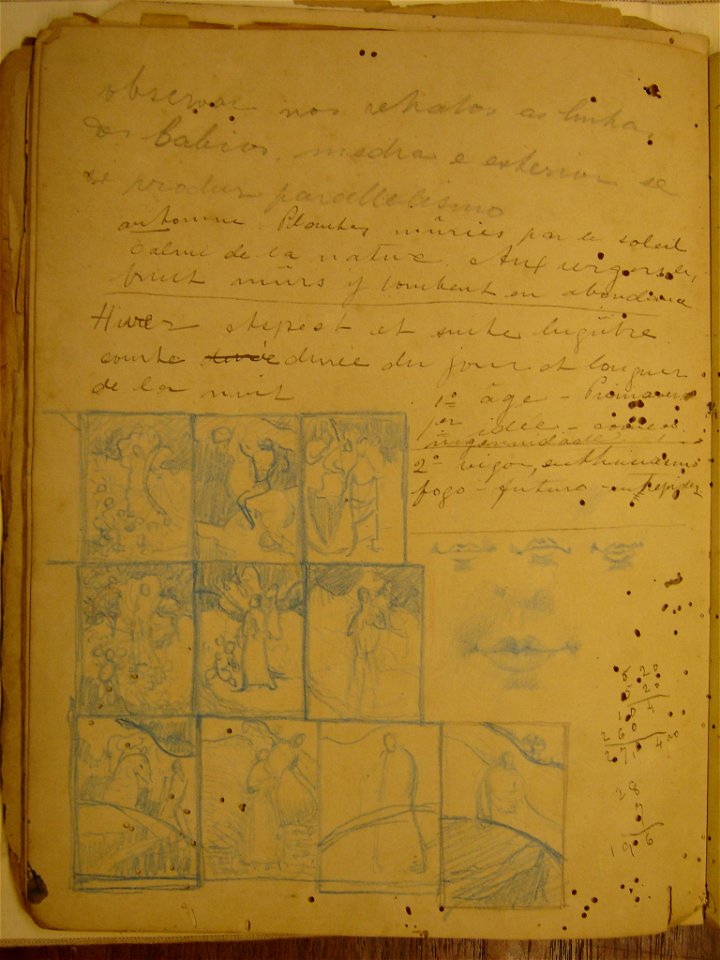 observar nos retratos as linhas
dos labios, media e exterior se
se produz parallelismo
automne Plantes mûries par le soleil
Calme de la nature. Aux vergers les
fruit mûrs y tombent en abondance
Hiver Aspect et suite lugubre
courte durée du jour et longueur
de la nuit
1º âge - Primavera
per idée -
ingenuidade
2º vigor enthusiasmo
fogo - futuro - intrepidez
5 20
5 20
10 4
2 60
2 7, 0 4 00
28
7
19 6